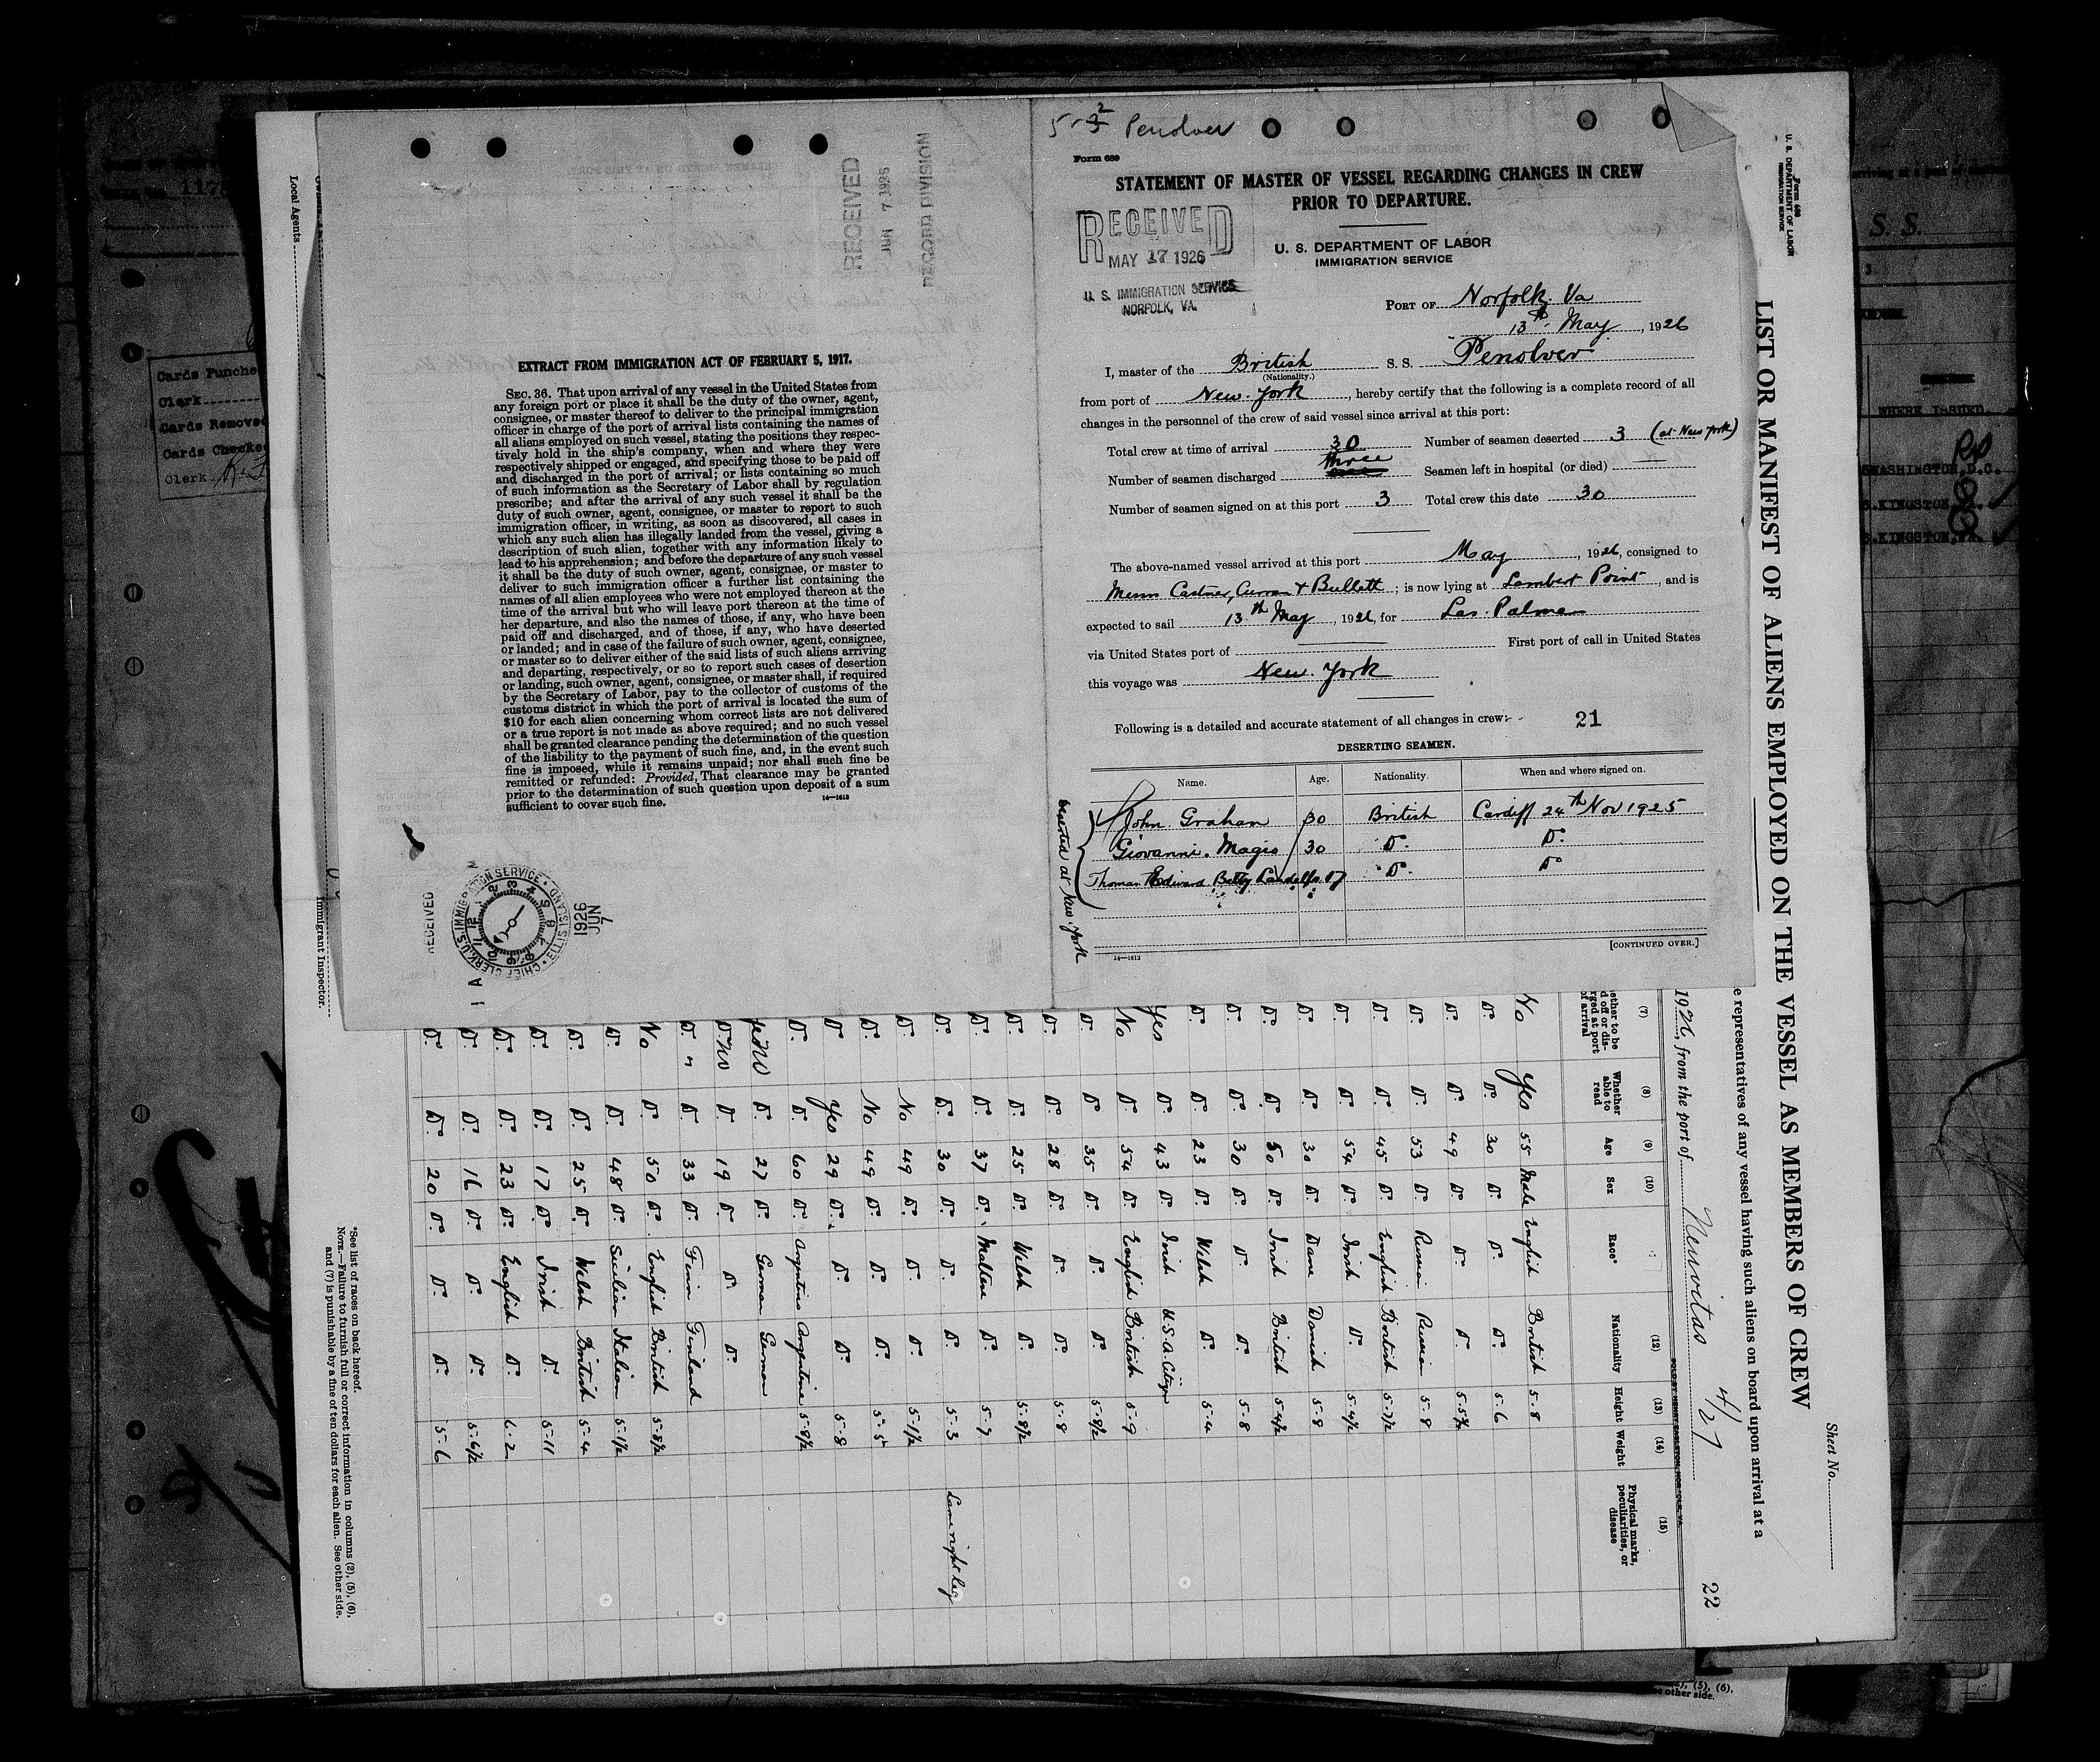 5-2 Penolver
Form 689
STATEMENT OF MASTER OF VESSEL REGARDING CHANGES IN CREW
PRIOR TO DEPARTURE.
RECEIVED
MAY 17 1926
U. S. IMMIGRATION SERVICE
NORFOLK, VA.
U. S. DEPARTMENT OF LABOR
IMMIGRATION SERVICE
PORT OF Norfolk. Va
13th May, 1926
I, master of the British S. S. Penolver
(Nationality.)
from port of New York, hereby certify that the following is a complete record of all
changes in the personnel of the crew of said vessel since arrival at this port:
Total crew at time of arrival 30 Number of seamen deserted 3 (at New York)
Number of seamen discharged three Seamen left in hospital (or died) —
Number of seamen signed on at this port 3 Total crew this date 30
The above-named vessel arrived at this port May, 1926, consigned to
Messrs Castner, Curran & Bullett; is now lying at Lambert Point, and is
expected to sail 13th May, 1926, for Las Palmas
via United States port of First port of call in United States
this voyage was New York
Following is a detailed and accurate statement of all changes in crew:
21
DESERTING SEAMEN.
Name. Age. Nationality. When and where signed on.
John Graham 30 British Cardiff 24th Nov 1925
Giovanni Magis 30 Do. Do.
Thomas Edward Betty Do. Do
deserted at New York
14—1613
[CONTINUED OVER.]
RECEIVED
JUN 7 1926
RECORD DIVISION
EXTRACT FROM IMMIGRATION ACT OF FEBRUARY 5, 1917.
SEC. 36. That upon arrival of any vessel in the United States from
any foreign port or place it shall be the duty of the owner, agent,
consignee, or master thereof to deliver to the principal immigration
officer in charge of the port of arrival lists containing the names of
all aliens employed on such vessel, stating the positions they respec-
tively hold in the ship's company, when and where they were
respectively shipped or engaged, and specifying those to be paid off
and discharged in the port of arrival; or lists containing so much
of such information as the Secretary of Labor shall by regulation
prescribe; and after the arrival of any such vessel it shall be the
duty of such owner, agent, consignee, or master to report to such
immigration officer, in writing, as soon as discovered, all cases in
which any such alien has illegally landed from the vessel, giving a
description of such alien, together with any information likely to
lead to his apprehension; and before the departure of any such vessel
it shall be the duty of such owner, agent, consignee, or master to
deliver to such immigration officer a further list containing the
names of all alien employees who were not employed thereon at the
time of the arrival but who will leave port thereon at the time of
her departure, and also the names of those, if any, who have been
paid off and discharged, and of those, if any, who have deserted
or landed; and in case of the failure of such owner, agent, consignee,
or master so to deliver either of the said lists of such aliens arriving
and departing, respectively, or so to report such cases of desertion
or landing, such owner, agent, consignee, or master shall, if required
by the Secretary of Labor, pay to the collector of customs of the
customs district in which the port of arrival is located the sum of
$10 for each alien concerning whom correct lists are not delivered
or a true report is not made as above required; and no such vessel
shall be granted clearance pending the determination of the question
of the liability to the payment of such fine, and, in the event such
fine is imposed, while it remains unpaid; nor shall such fine be
remitted or refunded: Provided, That clearance may be granted
prior to the determination of such question upon deposit of a sum
sufficient to cover such fine.
14—1613
RECEIVED
U.S. IMMIGRATION SERVICE
CHIEF CLERK ELLIS ISLAND
1926
JUN
7
Local Agents
Immigrant Inspector.
Form 680
U. S. DEPARTMENT OF LABOR
IMMIGRATION SERVICE
Sheet No.
LIST OR MANIFEST OF ALIENS EMPLOYED ON THE VESSEL AS MEMBERS OF CREW
e representatives of any vessel having such aliens on board upon arrival at a
1926, from the port of Nuevitas 4/27
22
(7) (8) (9) (10) (12) (13) (14) (15)
Whether able to read
Age
Sex
Race*
Nationality
Height
Weight
Physical marks, peculiarities, or disease
No Yes 55 Male English British 5-8
Do. Do. 30 Do. Do. Do. 5-6
Do. Do. 49 Do. Do. Do. 5-5½
Do. 53 Do. Russian Russian 5-8
Do. Do. 45 Do. English British 5-7½
Do. Do. 54 Do. Irish Do. 5-4½
Do. Do. 30 Do. Dane Danish 5-8
Do. Do. 50 Do. Irish British 5-4½
Do. Do. 30 Do. Do. Do. 5-8
Do. Do. 23 Do. Welsh Do. 5-4
Yes Do. 43 Do. Irish U.S.A. Citizen
No Do. 54 Do. English British 5-9
Do. Do. 35 Do. Do. Do. 5-8½
Do. Do. 28 Do. Do. Do. 5-8
Do. Do. 25 Do. Welsh Do. 5-8½
Do. Do. 37 Do. Maltese Do. 5-7
Do. Do. 30 Do. Do. Do. 5-3 Lame right leg
Do. No 49 Do. Do. Do. 5-1½
Do. No 49 Do. Do. Do. 5-5
Do. Yes 29 Do. Do. Do. 5-8
Do. Do. 60 Do. Argentine Argentine 5-8½
Do. 27 Do. German German
Do. No Do. 19 Do. Do. Do.
Do. Do. 33 Do. Finn Finland
No Do. 50 Do. English British 5-8½
Do. Do. 48 Do. Sicilian Italian 5-1½
Do. Do. 25 Do. Welsh British 5-4
Do. Do. 17 Do. Irish Do. 5-11
Do. Do. 23 Do. English Do. 6-2
Do. Do. 16 Do. Do. Do. 5-6½
Do. Do. 20 Do. Do. Do. 5-6
*See list of races on back hereof.
NOTE.—Failure to furnish full or correct information in columns (2), (5), (6),
and (7) is punishable by a fine of ten dollars for each alien. See other side.
Cards Punche
Clerk
Cards Removed
Cards Checked
Clerk
S. S.
WHERE ISSUED.
WASHINGTON, D.C.
S. KINGSTON, JA.
S. KINGSTON, JA.
(5), (6).
other side.